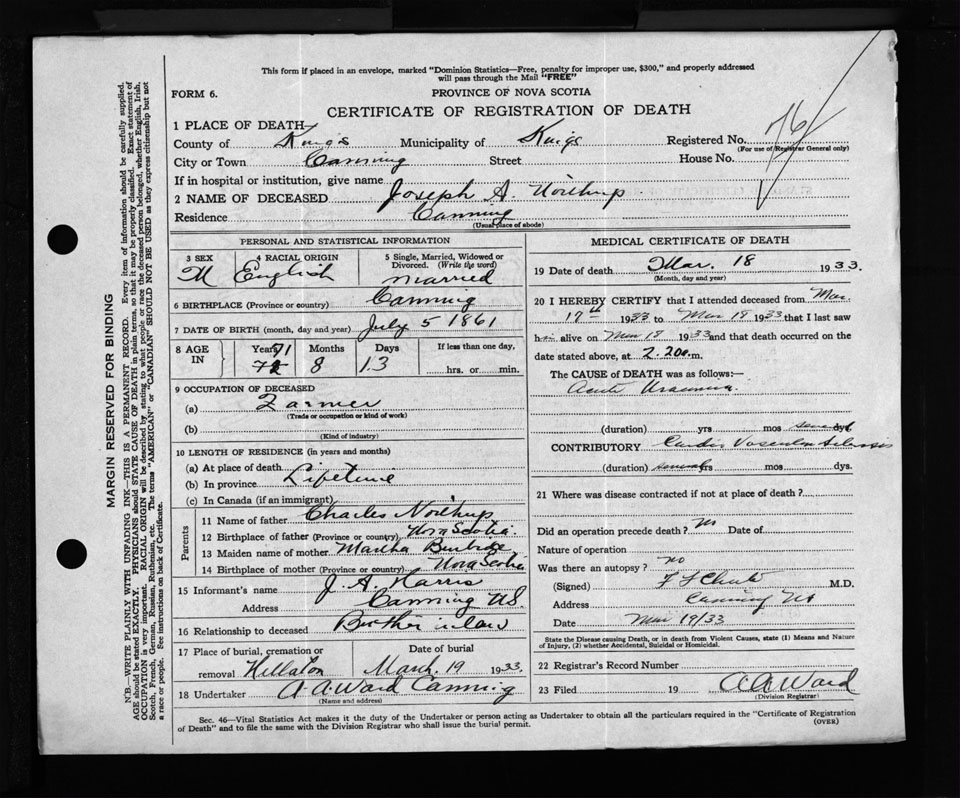 This form if placed in an envelope, marked "Dominion Statistics—Free, penalty for improper use, $300," and properly addressed
will pass through the Mail "FREE"
FORM 6.
PROVINCE OF NOVA SCOTIA
CERTIFICATE OF REGISTRATION OF DEATH
1 PLACE OF DEATH—
County of Kings Municipality of Kings Registered No. 76
(For use of Registrar General only)
City or Town Canning Street House No.
If in hospital or institution, give name
2 NAME OF DECEASED Joseph A. Northup
Residence Canning
(Usual place of abode)
PERSONAL AND STATISTICAL INFORMATION
3 SEX 4 RACIAL ORIGIN 5 Single, Married, Widowed or
Divorced. (Write the word)
M English married
6 BIRTHPLACE (Province or country) Canning
7 DATE OF BIRTH (month, day and year) July 5 1861
8 AGE IN Years 71 Months 8 Days 13 If less than one day,
hrs. or min.
9 OCCUPATION OF DECEASED
(a) Farmer
(Trade or occupation or kind of work)
(b)
(Kind of industry)
10 LENGTH OF RESIDENCE (in years and months)
(a) At place of death
(b) In province Lifetime
(c) In Canada (if an immigrant)
Parents
11 Name of father Charles Northup
12 Birthplace of father (Province or country) Nova Scotia
13 Maiden name of mother Martha
14 Birthplace of mother (Province or country) Nova Scotia
15 Informant's name J. A. Harris
Address Canning N.S.
16 Relationship to deceased Brother in law
17 Place of burial, cremation or removal Hillaton
Date of burial March 19 1933.
18 Undertaker A. A. Ward Canning
(Name and address)
MEDICAL CERTIFICATE OF DEATH
19 Date of death Mar. 18 1933.
(Month, day and year)
20 I HEREBY CERTIFY that I attended deceased from Mar.
17th 1933 to Mar 18 1933 that I last saw
him alive on Mar 18 1933 and that death occurred on the
date stated above, at 2.20 a.m.
The CAUSE of DEATH was as follows:
Acute Uraemia
(duration) yrs mos several dys.
CONTRIBUTORY Cardio Vascular Sclerosis
(duration) several yrs mos dys.
21 Where was disease contracted if not at place of death?
Did an operation precede death? no Date of
Nature of operation
Was there an autopsy? no
(Signed) M.D.
Address Canning NS
Date Mar 19/33
State the Disease causing Death, or in death from Violent Causes, state (1) Means and Nature
of Injury, (2) whether Accidental, Suicidal or Homicidal.
22 Registrar's Record Number
23 Filed 19 A A Ward
(Division Registrar)
Sec. 46—Vital Statistics Act makes it the duty of the Undertaker or person acting as Undertaker to obtain all the particulars required in the "Certificate of Registration
of Death" and to file the same with the Division Registrar who shall issue the burial permit.
(OVER)
MARGIN RESERVED FOR BINDING
N.B.—WRITE PLAINLY WITH UNFADING INK—THIS IS A PERMANENT RECORD. Every item of information should be carefully supplied.
AGE should be stated EXACTLY. PHYSICIANS should STATE CAUSE OF DEATH in plain terms, so that it may be properly classified. Exact statement of
OCCUPATION is very important. RACIAL ORIGIN will be described by stating to what people or race the deceased person belonged, whether English, Irish,
Scotch, French, German, Russian, Ruthenian, etc. The terms "AMERICAN" or "CANADIAN" SHOULD NOT BE USED as they express citizenship but not
a race or people. See instructions on back of Certificate.